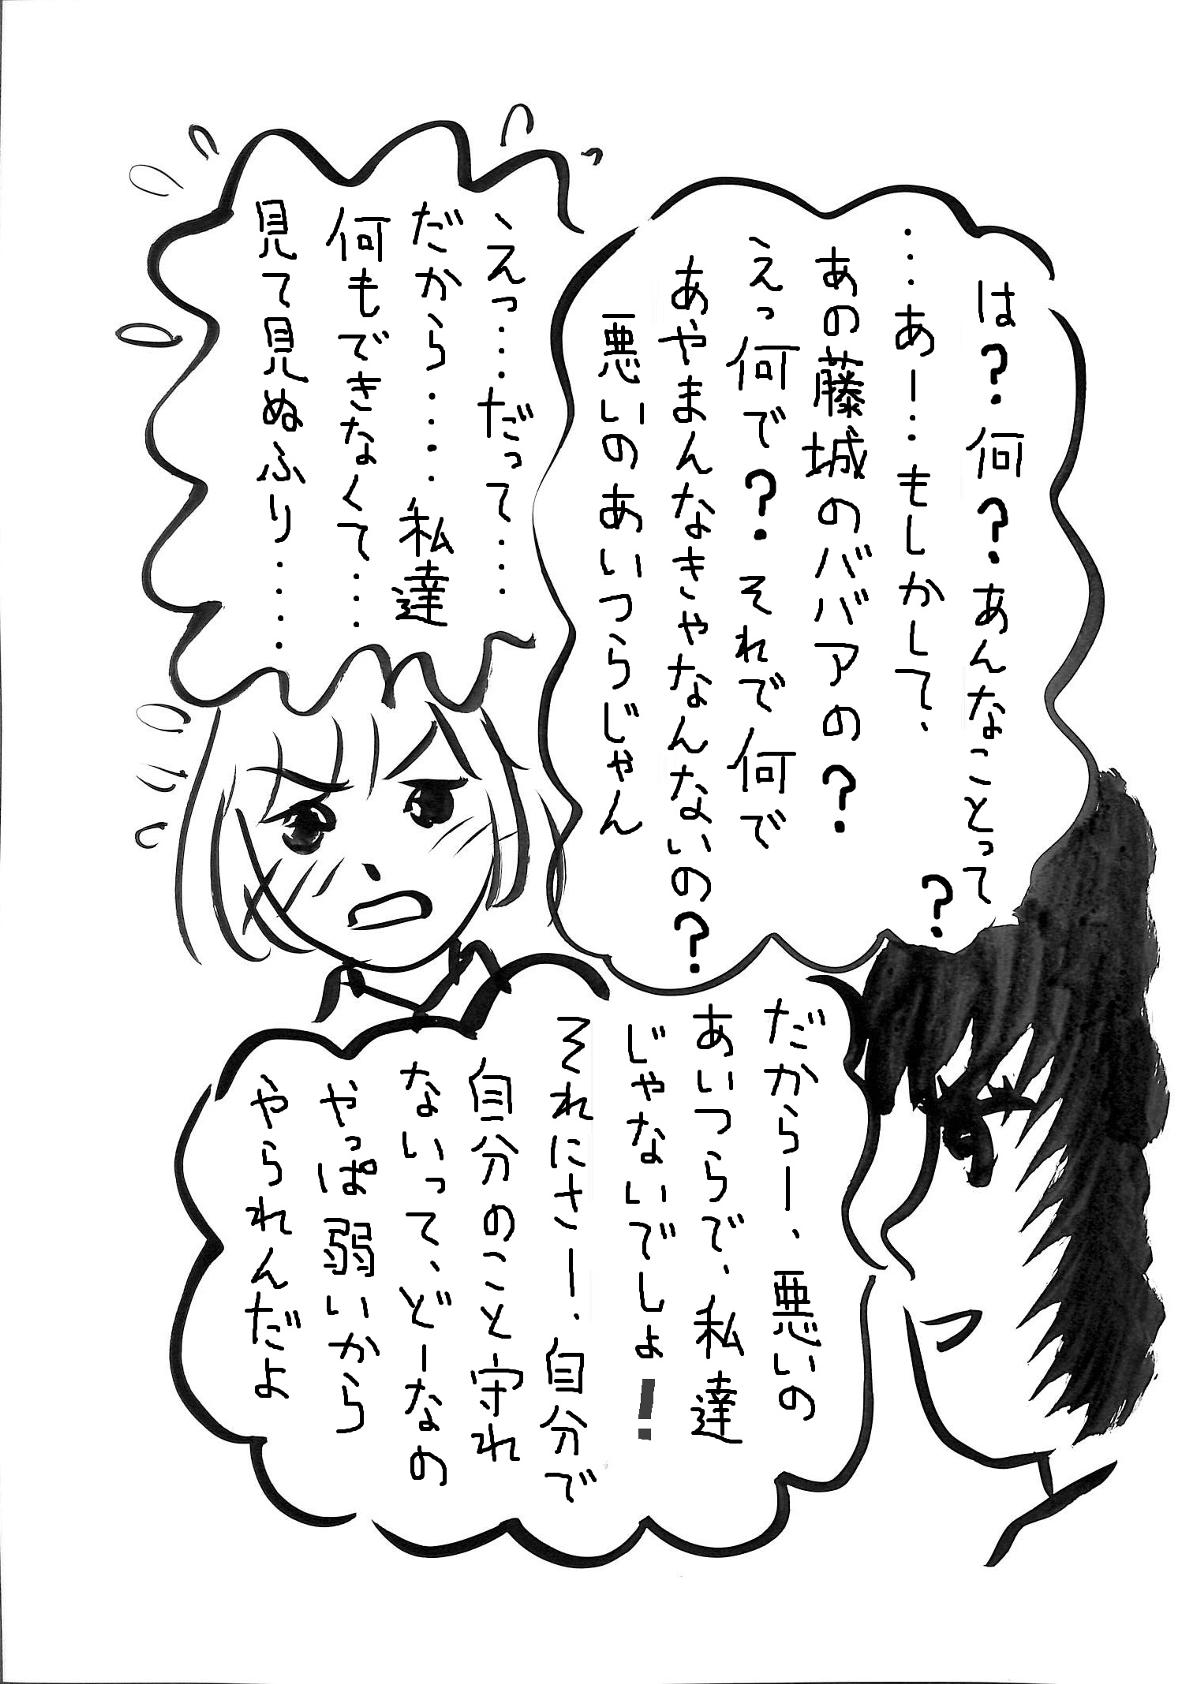 は？何？あんなことって？
…あー…もしかして、
あの藤城のババアの？
えっ何で？それで何で
あやまんなきゃなんないの？
悪いのあいつらじゃん
えっ…だって…
だから……私達
何もできなくて…
見て見ぬふり……
だからー、悪いの
あいつらで、私達
じゃないでしょ！
それにさー、自分で
自分のこと守れ
ないって、どーなの
やっぱ弱いから
やられんだよ